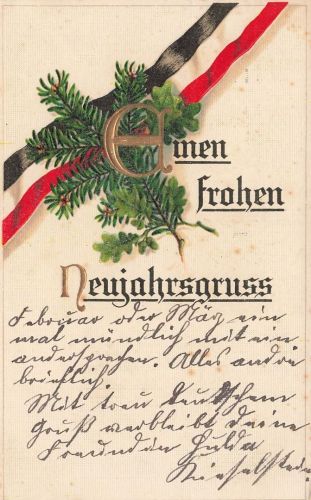 Einen
frohen
Neujahrsgruss
Februar oder März ein
mal mündlich mit ein
andersprachen. Alles andre
brieflich.
Mit treu Deutschem
Gruß verbleibt Deine
Freundin Hulda